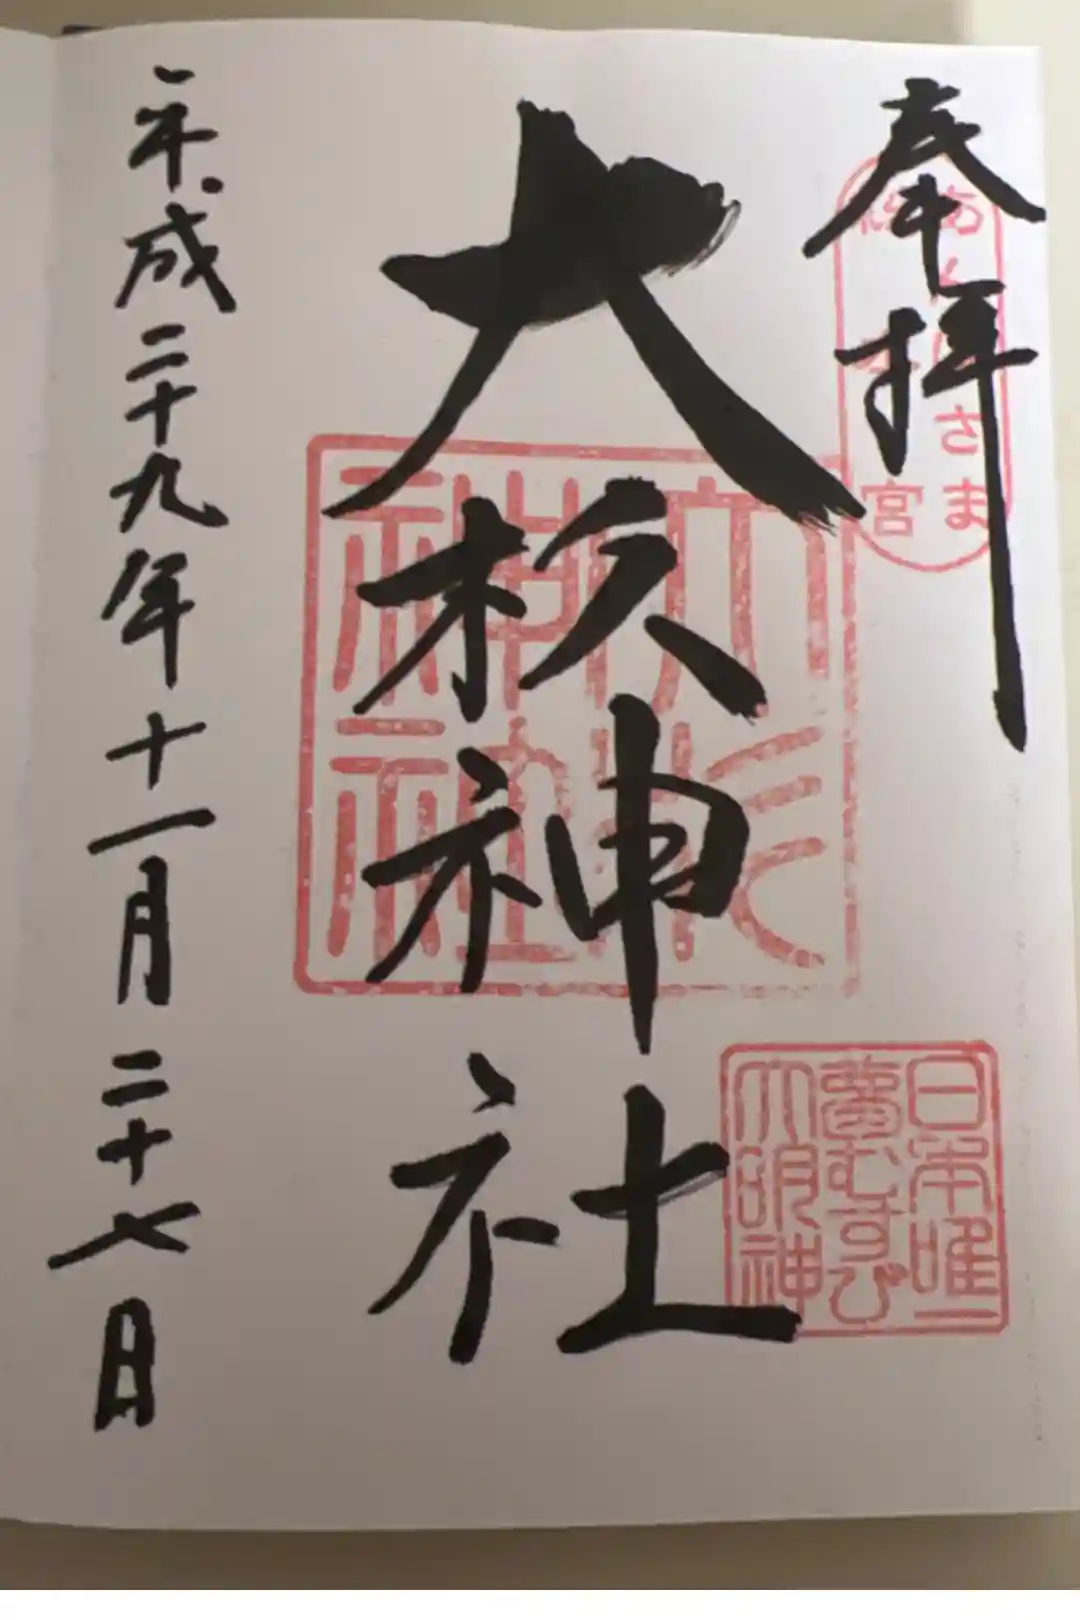 奉拝
あんばさま
総本宮
大杦神社
大杉
神社
日本唯一
夢むすび
大明神
平成二十九年十一月二十七日